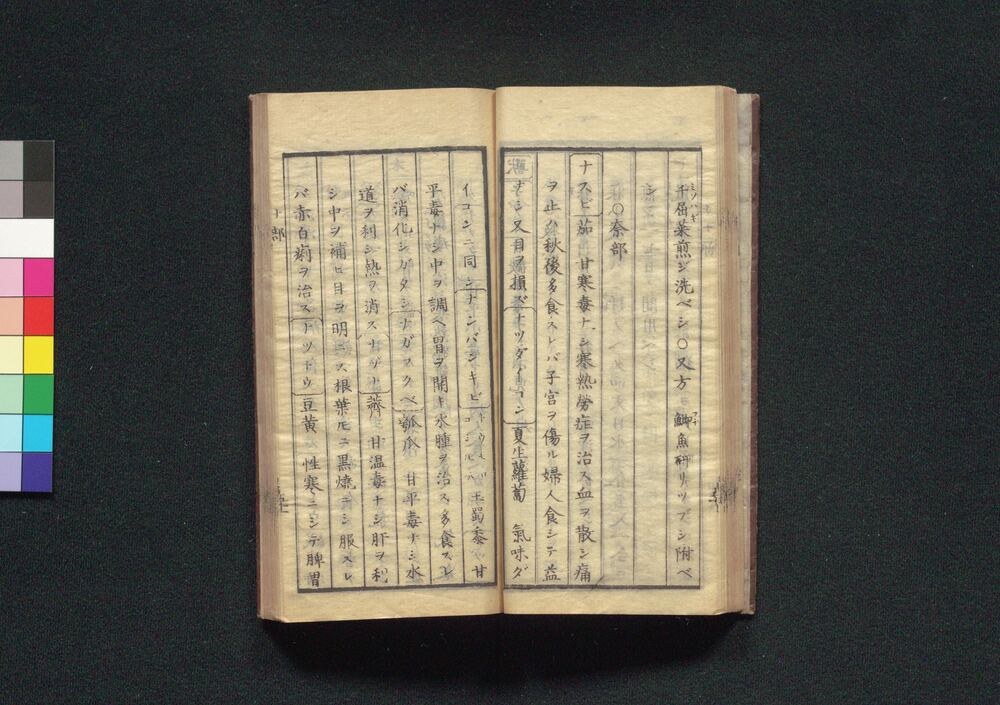 千屈菜煎ジ洗ベシ〇又方ニ鯽魚研リツブシ附ベ
ミソハギ
フナ
シ
〇奈部
ナスビ 茄 甘寒毒ナシ寒熱労症ヲ治ス血ヲ散シ痛
ヲ止ム秋後多食スレバ子宮ヲ傷ル婦人食シテ益
ナシ又目ヲ損ズ ナツダイコン 夏生蘿蔔 氣味ダ
イコンニ同シ ナンバンキビ 玉蜀黍 甘
平毒ナシ中ヲ調ヘ胃ヲ開キ水腫ヲ治ス多食スレ
バ消化シガタシ ナガフクベ 瓠瓜 甘平毒ナシ水
道ヲ利シ熱ヲ消ス ナヅナ 薺 甘温毒ナシ肝ヲ利
シ中ヲ補ヒ目ヲ明ニス根葉尼ニ黒焼ニシ服スレ
バ赤白痢ヲ治ス ナツトウ 豆黄 性寒ニシテ脾胃